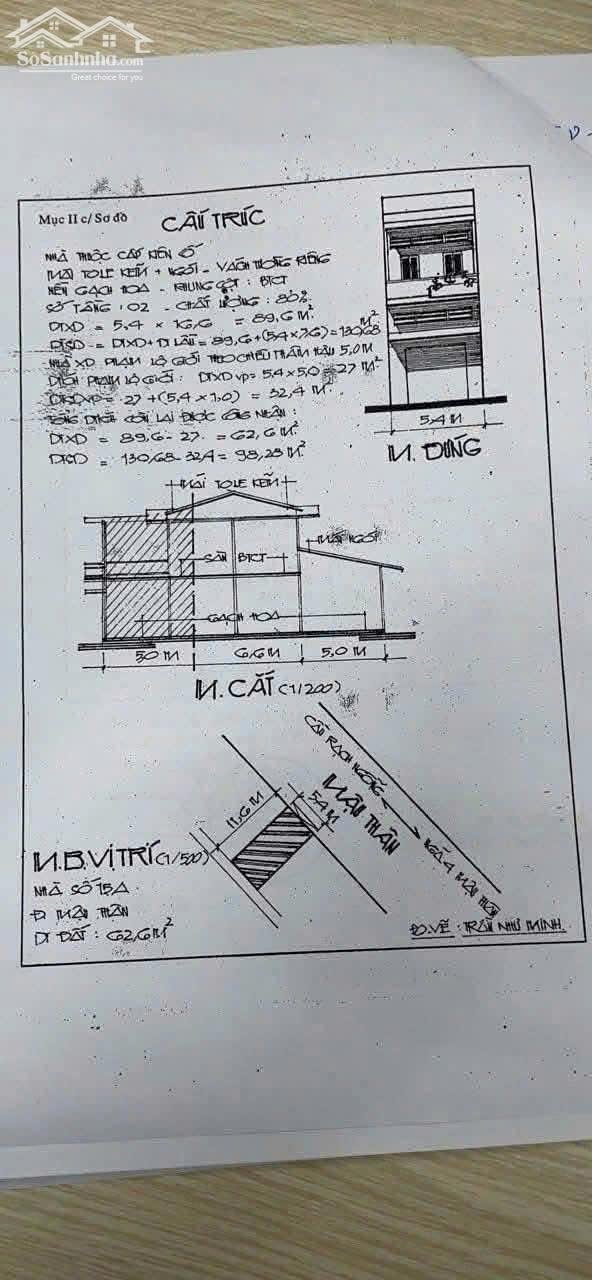 SoSanhnha.com
Great choice for you
Mục II c/ Sơ đồ
CẤU TRÚC
NHÀ THUỘC CẤP KIÊN CỐ
MÁI TOLE KẼM + NGÓI - VÁCH TƯỜNG RIÊNG
NỀN GẠCH HOA - KHUNG CỘT : BTCT
SỐ TẦNG : 02 - CHẤT LƯỢNG : 80%
DTXD = 5,4 × 16,6 = 89,6 M²
DTSD = DTXD + DT LẦU = 89,6 + (5,4 × 7,6) = 130,68 M²
NHÀ XD PHẠM LỘ GIỚI THEO CHIỀU THÂM HẬU 5,0 M
DTÍCH PHẠM LỘ GIỚI : DTXD VP = 5,4 × 5,0 = 27 M²
DTSD VP = 27 + (5,4 × 1,0) = 32,4 M²
TỔNG DTÍCH CÒN LẠI ĐƯỢC CÔNG NHẬN :
DTXD = 89,6 - 27 = 62,6 M²
DTSD = 130,68 - 32,4 = 98,28 M²
5,4 M
M. ĐỨNG
MÁI TOLE KẼM
MÁI NGÓI
SÀN BTCT
GẠCH HOA
5,0 M
6,6 M
5,0 M
M. CẮT (1/200)
CẦU RẠCH NGỖNG
MẬU THÂN
NGÃ 4 MẬU THÂN
11,6 M
5,4 M
M.B.VỊ TRÍ (1/500)
NHÀ SỐ 15A
Đ MẬU THÂN
DT ĐẤT : 62,6 M²
ĐO.VẼ : TRẦN NHƯ MINH.